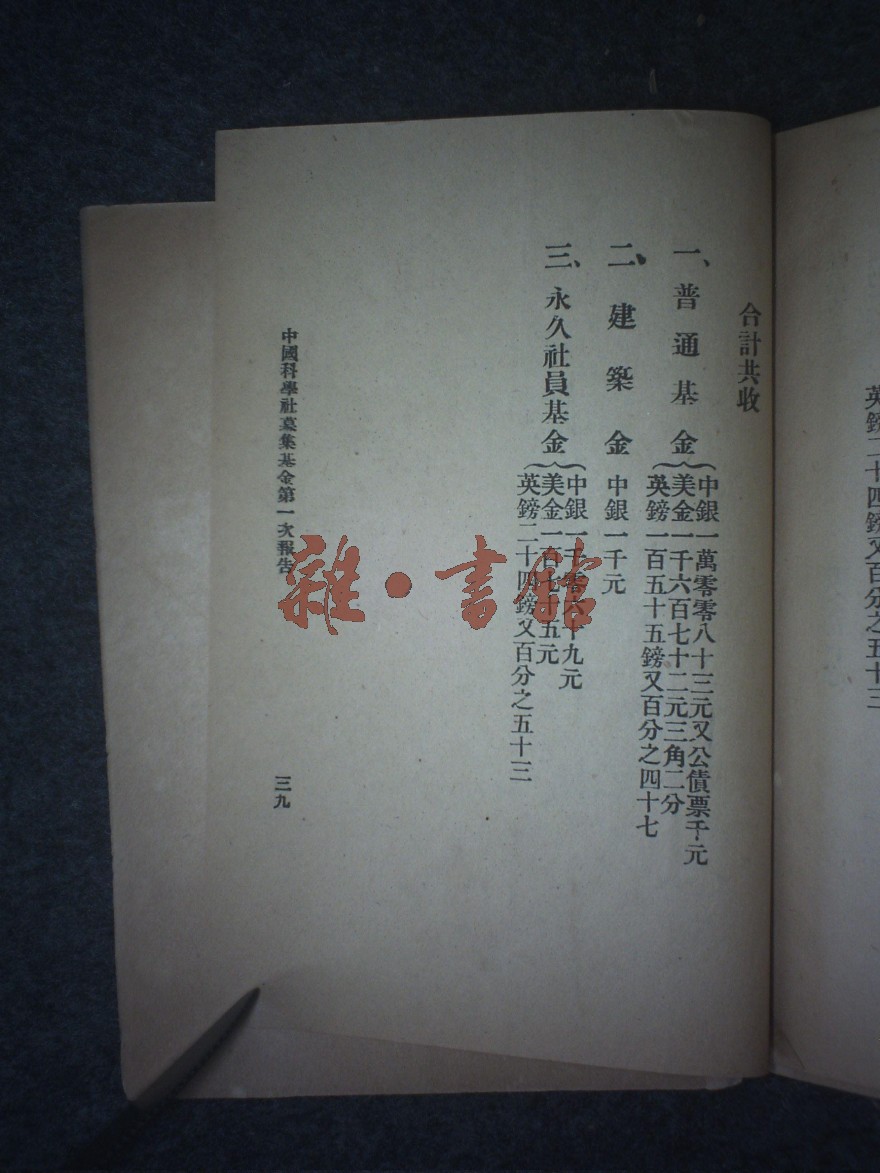 英鎊二十四鎊又百分之五十三
合計共收
一、普通基金
中銀一萬零零八十三元又公債票千元
美金一千六百七十二元三角二分
英鎊一百五十五鎊又百分之四十七
二、建築金 中銀一千元
三、永久社員基金
中銀一千零六十九元
美金一百七十五元
英鎊二十四鎊又百分之五十三
中國科學社募集基金第一次報告
三九
雜·書館